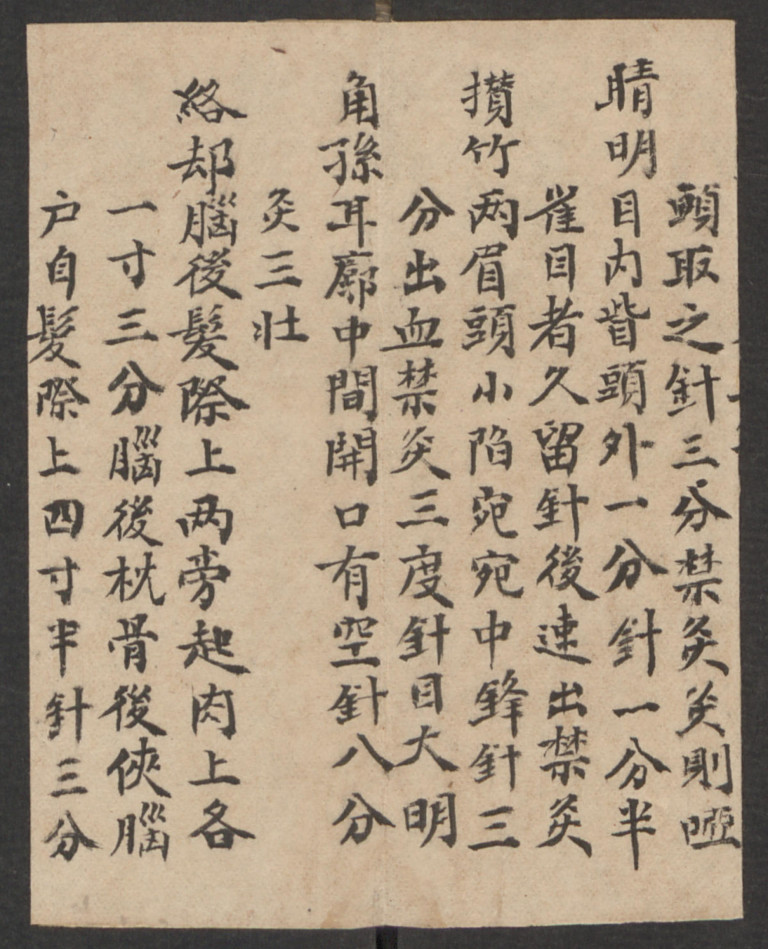 頭取之針三分禁灸灸則啞
睛明目內眥頭外一分針一分半
雀目者久留針後速出禁灸
攅竹两眉頭小陷宛宛中鋒針三
分出血禁灸三度針目大明
角孫耳廓中間開口有空針八分
灸三壮
絡却腦後髮際上两旁起肉上各
一寸三分腦後枕骨後俠腦
户自髮際上四寸半針三分